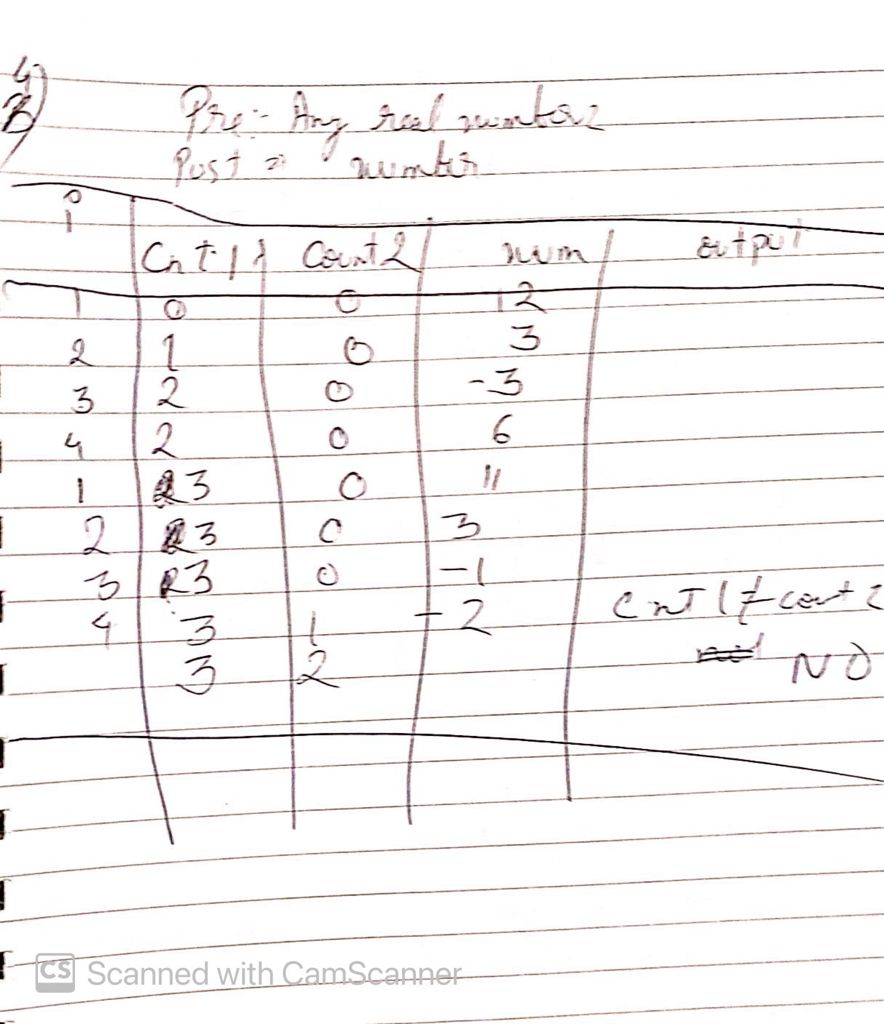 4)
3)
Pre:- Any real numbers
Post => number
i
Cnt 1 Count 2 num output
1 0 0 12
2 1 0 3
3 2 0 -3
4 2 0 6
1 3 0 11
2 3 0 3
3 3 0 -1
4 3 1 -2 Cnt 1 ≠ cont 2
3 2 NO
CS Scanned with CamScanner